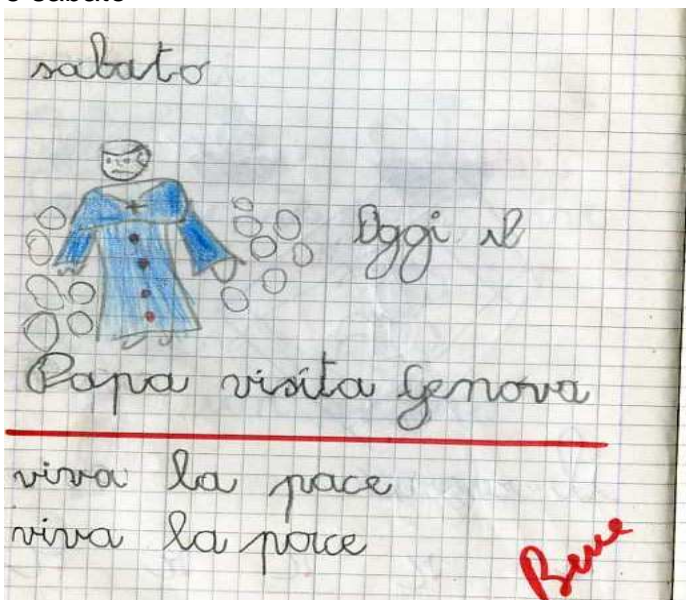 sabato
Oggi il
Papa visita Genova
viva la pace
viva la pace
Bene